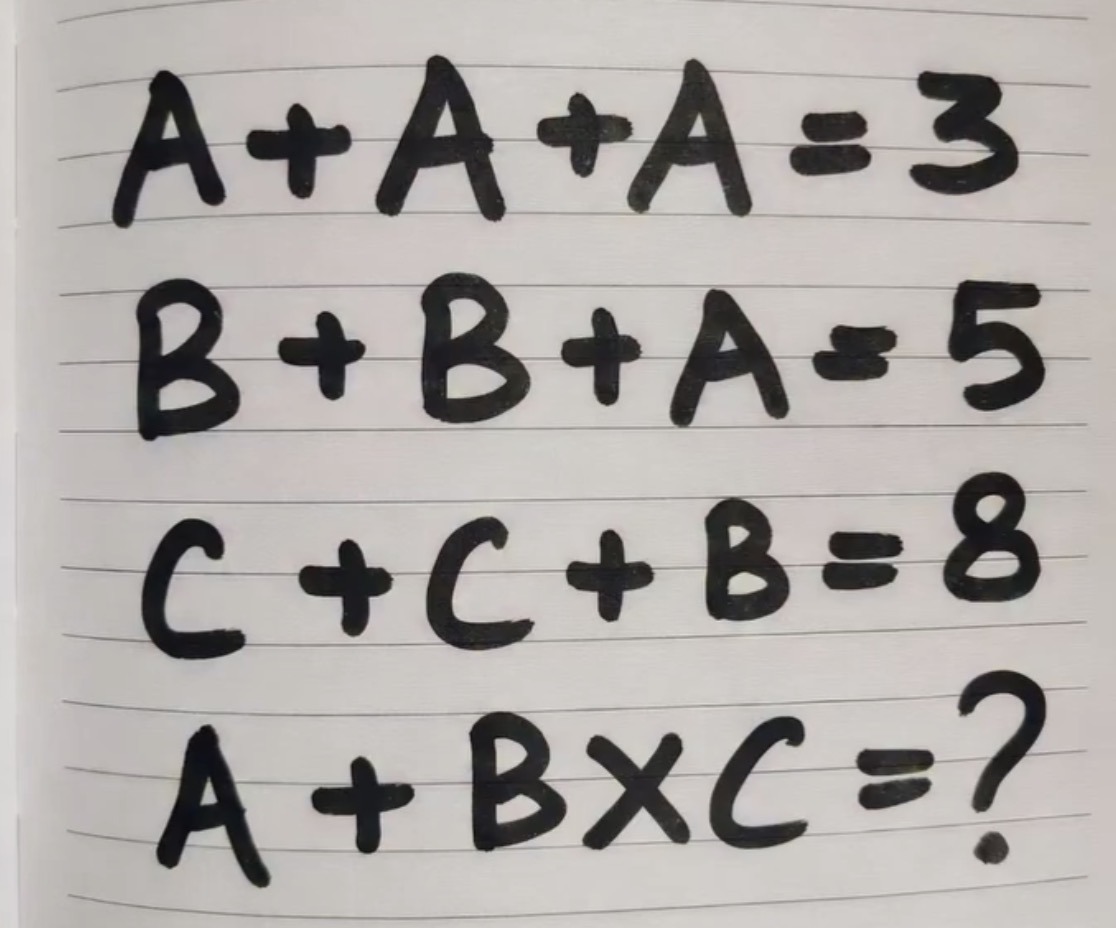 A+A+A=3
B+B+A=5
C+C+B=8
A+B×C=?